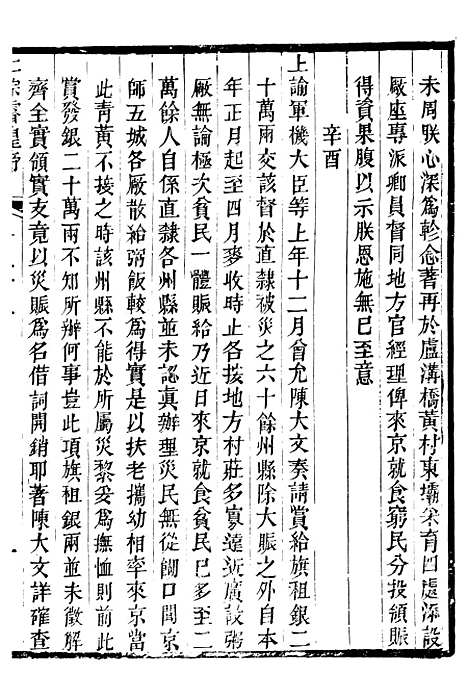 未周朕心深爲軫念著再於盧溝橋黃村東壩采育四處添設
厰座專派卿員督同地方官經理俾來京就食窮民分投領賑
得資果腹以示朕恩施無已至意
辛酉
上諭軍機大臣等上年十二月曾允陳大文奏請賞給旗租銀二
十萬兩交該督於直隸被災之六十餘州縣除大賑之外自本
年正月起至四月麥收時止各按地方村莊多寡遠近廣設粥
厰無論極次貧民一體賑給乃近日來京就食貧民已多至二
萬餘人自係直隸各州縣並未認真辦理災民無從餬口聞京
師五城各厰散給粥飯較爲得實是以扶老攜幼相率來京當
此青黃不接之時該州縣不能於所屬災黎妥爲撫恤則前此
賞發銀二十萬兩不知所辦何事豈此項旗租銀兩並未徵解
齊全實領實支竟以災賑爲名借詞開銷耶著陳大文詳確查
仁宗睿皇帝